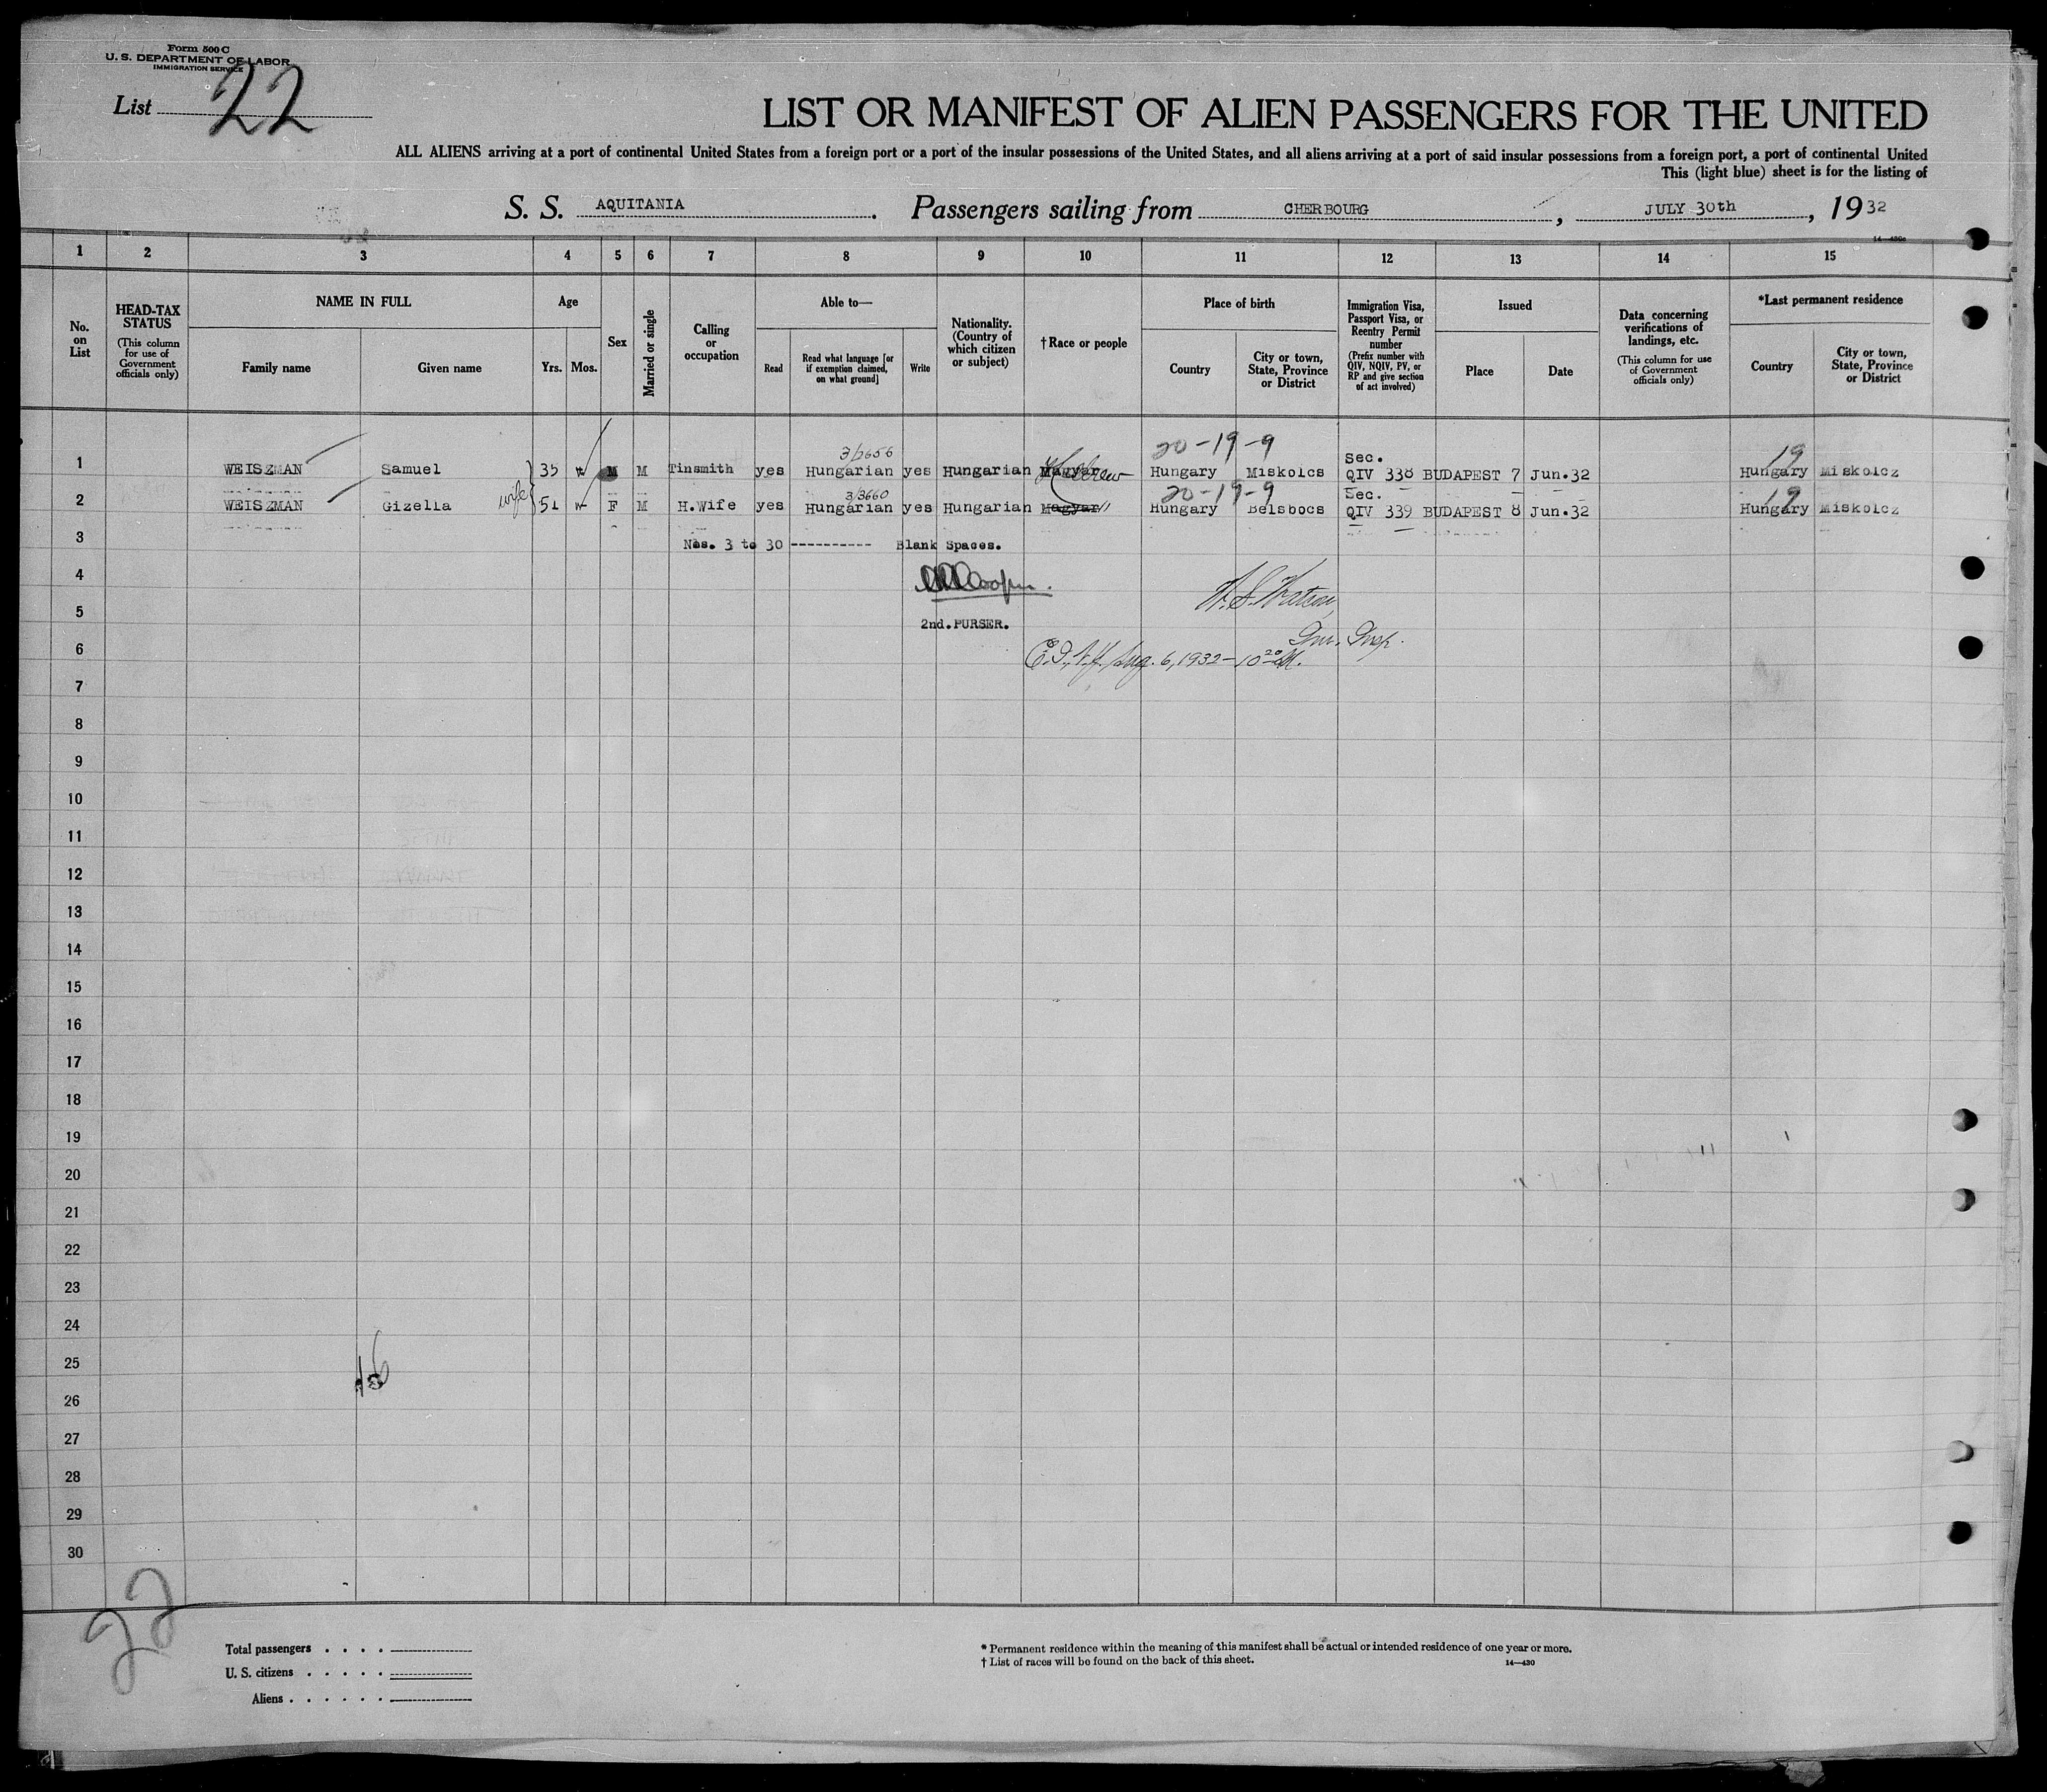 Form 500 C
U. S. DEPARTMENT OF LABOR
IMMIGRATION SERVICE
List 22
LIST OR MANIFEST OF ALIEN PASSENGERS FOR THE UNITED
ALL ALIENS arriving at a port of continental United States from a foreign port or a port of the insular possessions of the United States, and all aliens arriving at a port of said insular possessions from a foreign port, a port of continental United
This (light blue) sheet is for the listing of
S. S. AQUITANIA. Passengers sailing from CHERBOURG, JULY 30th, 1932
14—430c
1 2 3 4 5 6 7 8 9 10 11 12 13 14 15
No. on List
HEAD-TAX STATUS
(This column for use of Government officials only)
NAME IN FULL
Family name Given name
Age
Yrs. Mos.
Sex
Married or single
Calling or occupation
Able to—
Read Read what language [or if exemption claimed, on what ground] Write
Nationality. (Country of which citizen or subject)
†Race or people
Place of birth
Country City or town, State, Province or District
Immigration Visa, Passport Visa, or Reentry Permit number
(Prefix number with QIV, NQIV, PV, or RP and give section of act involved)
Issued
Place Date
Data concerning verifications of landings, etc.
(This column for use of Government officials only)
*Last permanent residence
Country City or town, State, Province or District
20-19-9 Sec. 19
1 WEISZMAN Samuel 35 M M Tinsmith yes Hungarian yes Hungarian Magyar Hebrew Hungary Miskolcs QIV 338 BUDAPEST 7 Jun.32 Hungary Miskolcz
3/3660 20-19-9 Sec. 19
2 WEISZMAN Gizella wife 51 F M H.Wife yes Hungarian yes Hungarian Magyar " Hungary Belsbocs QIV 339 BUDAPEST 8 Jun.32 Hungary Miskolcz
3 Nos. 3 to 30 ---------- Blank Spaces.
4
W. S. Watson,
5
2nd. PURSER.
Imm. Insp.
6 E.I., N.Y. Aug. 6, 1932 - 10 20 AM.
7
8
9
10
11
12
13
14
15
16
17
18
19
20
21
22
23
24
25
26
27
28
29
30
22
Total passengers . . . .
U. S. citizens . . . . .
Aliens . . . . . .
* Permanent residence within the meaning of this manifest shall be actual or intended residence of one year or more.
† List of races will be found on the back of this sheet.
14—430